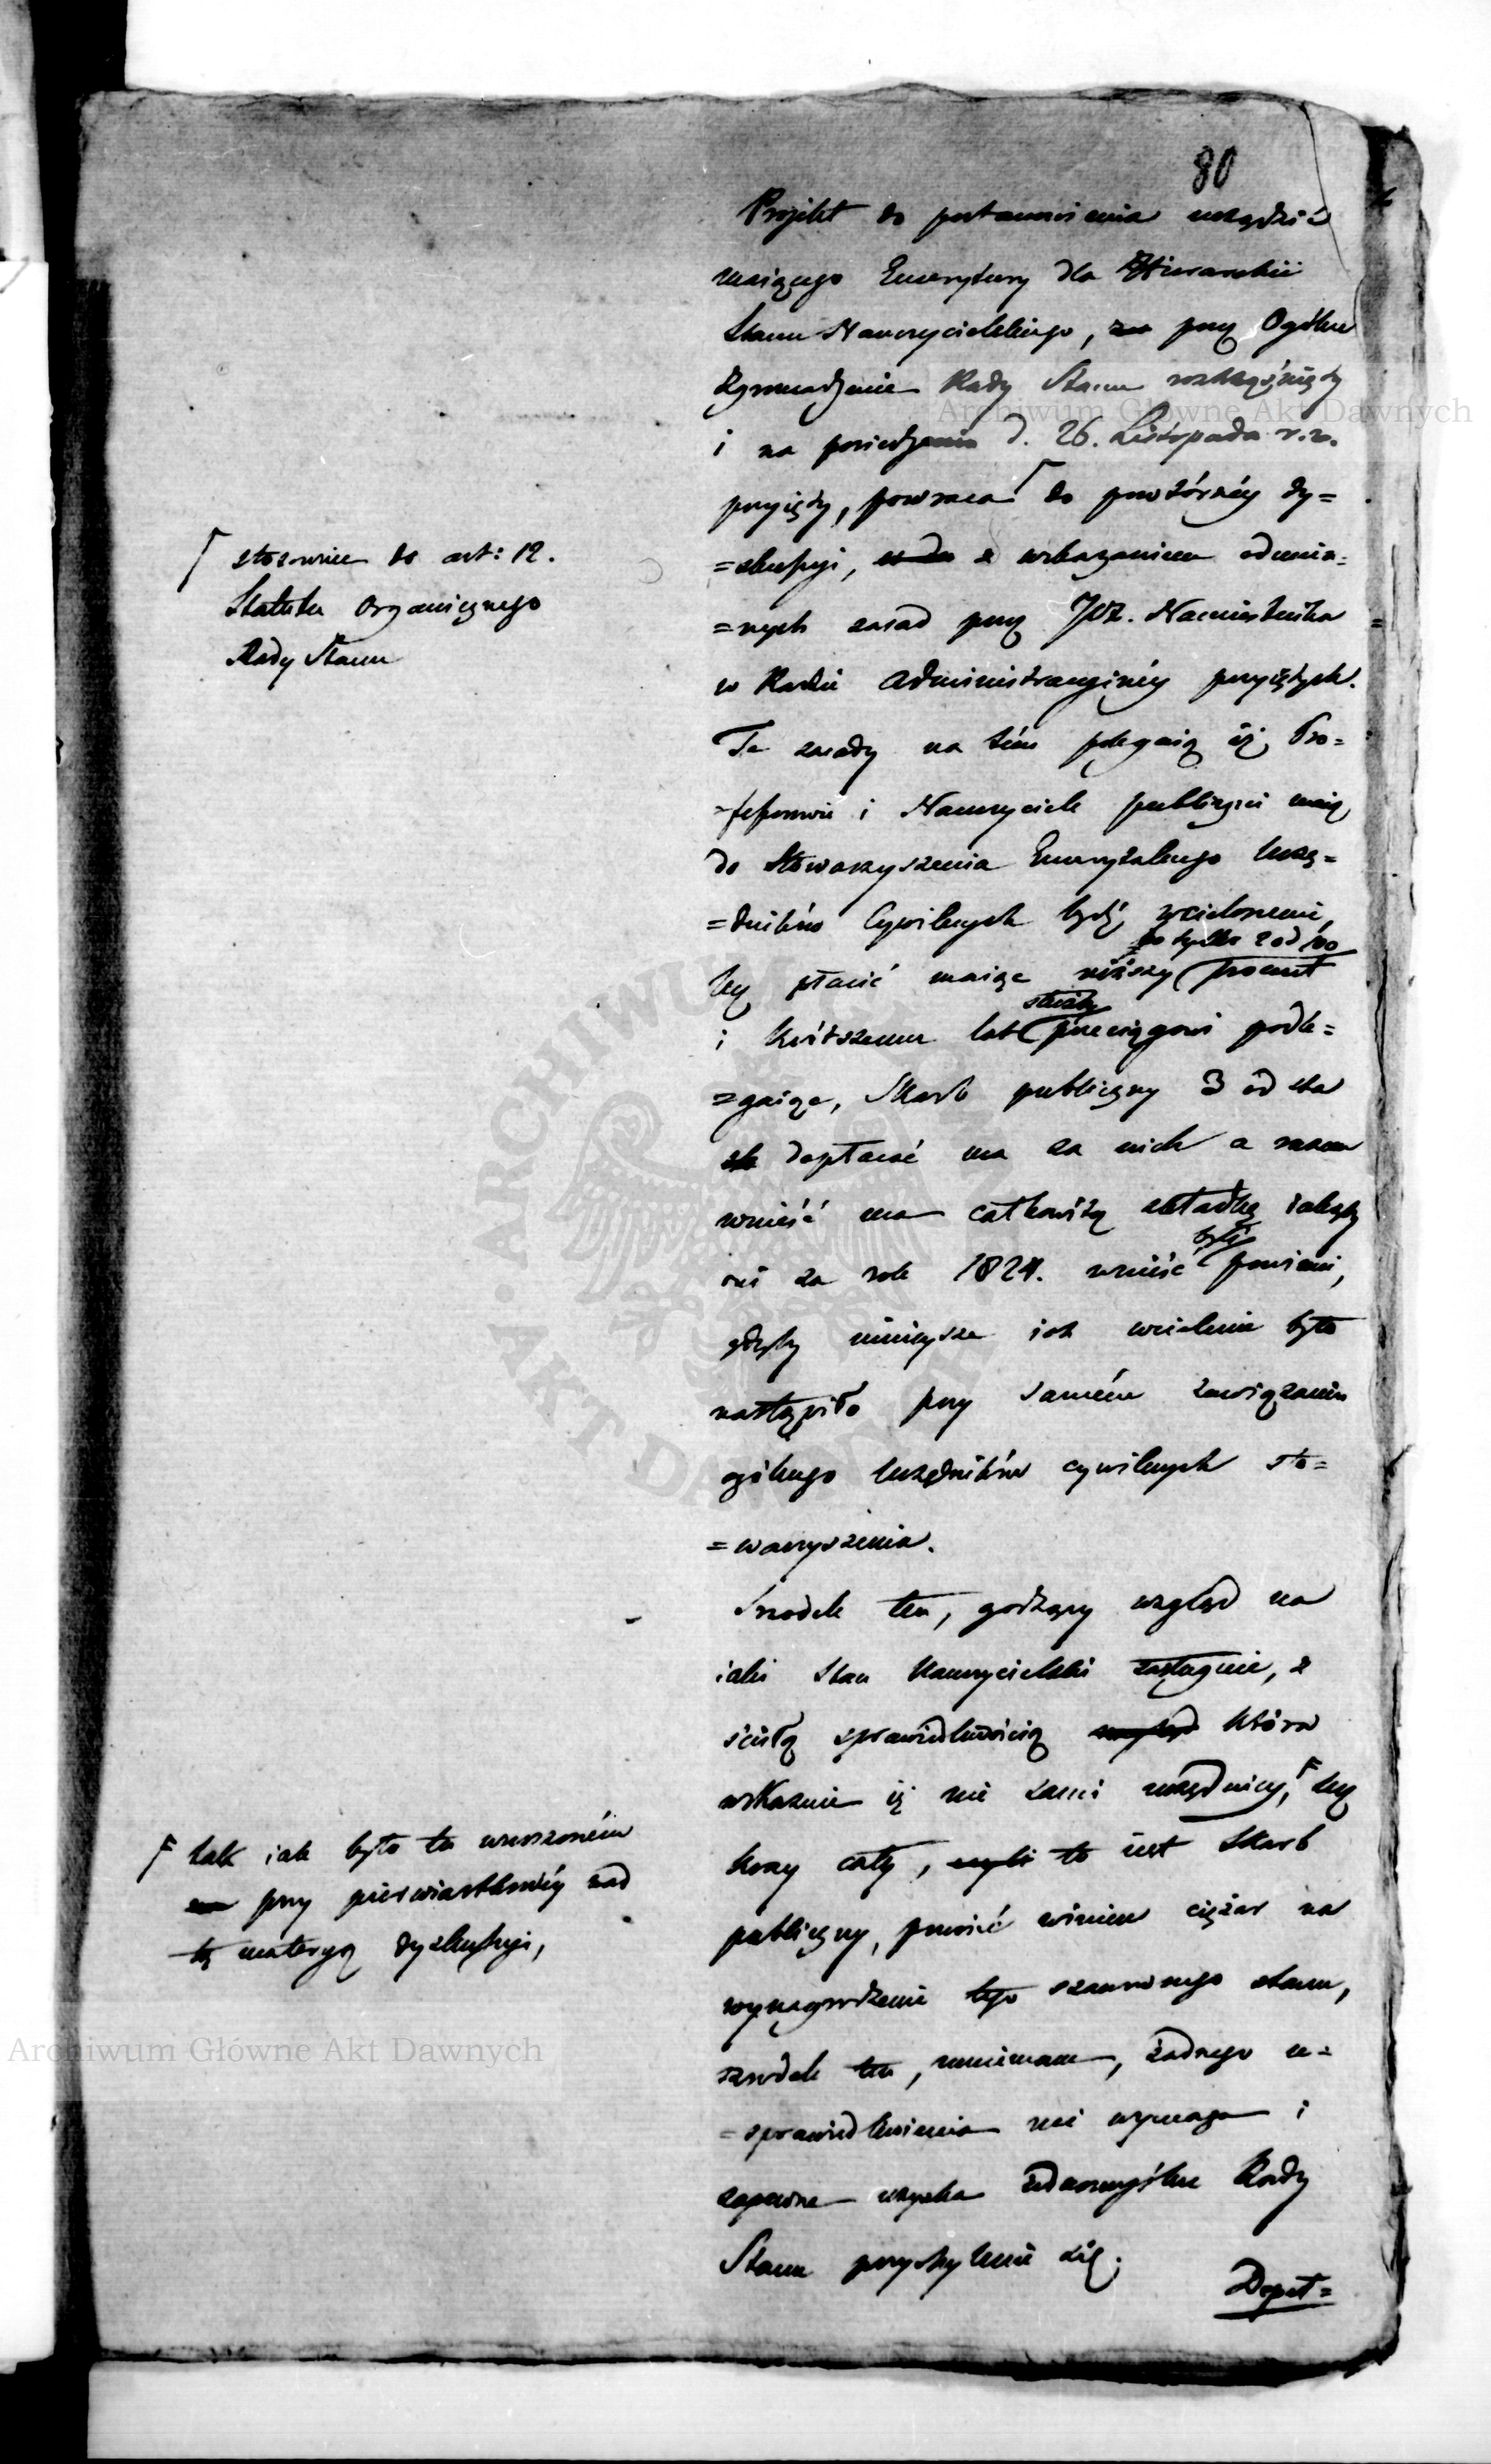 80
Projekt do postanowienia urządzić
maiącego Emerytury dla Hierarchii
Stanu Nauczycielskiego, przez Ogólne
Zgromadzenie Rady Stanu roztrząśnięty
i na posiedzeniu d. 26. Listopada r. z.
przyięty, powraca ⌈ do powtórnéy dy=
=skussyi, z wskazaniem odmien=
=nych zasad przez JOX. Namiestnika
w Radzie Administracyinéy przyiętych.
Te zasady na tém polegaią iż Pro=
=fessorowie i Nauczyciele publiczni maią
do Stowarzyszenia Emerytalnego Urzę=
=dników Cywilnych bydź wcielonemi,
po tylko 2 od 100
lecz płacić maiąc niższy procent
służby
i krótszemu lat przeciągowi podle=
=gaiąc, Skarb publiczny 3 od sta
dopłacać ma za nich a razem
wnieść ma całkowitą składkę iakąby
byli
oni za rok 1824. wnieść powinni,
gdyby ninieysze ich wcielenie było
nastąpiło przy saméém zawiązaniu
ogólnego Urzędników cywilnych sto=
=warzyszenia.
Srzodek ten, godzący wzgląd na
iaki Stan Nauczycielski zasługuie, z
ścisłą sprawiedliwością która
wskazuie iż nie sami urzędnicy, ⌈ lecz
kray cały, to iest Skarb
publiczny, ponosić winien ciężar na
wynagrodzenie tego szanownego stanu,
szrodek ten, mniemam, żadnego u=
=sprawiedliwienia nie wymaga i
zapewne uzyska iednomyślne Rady
Stanu przychylenie się.
Deput=
⌈ stosownie do art: 12.
Statutu Organicznego
Rady Stanu
⌈ tak iak było to wnoszoném
przy pierwiastkowéy nad
tą materyą dyskussyi,
Archiwum Główne Akt Dawnych
Archiwum Główne Akt Dawnych
ARCHIWUM GŁÓWNE AKT DAWNYCH